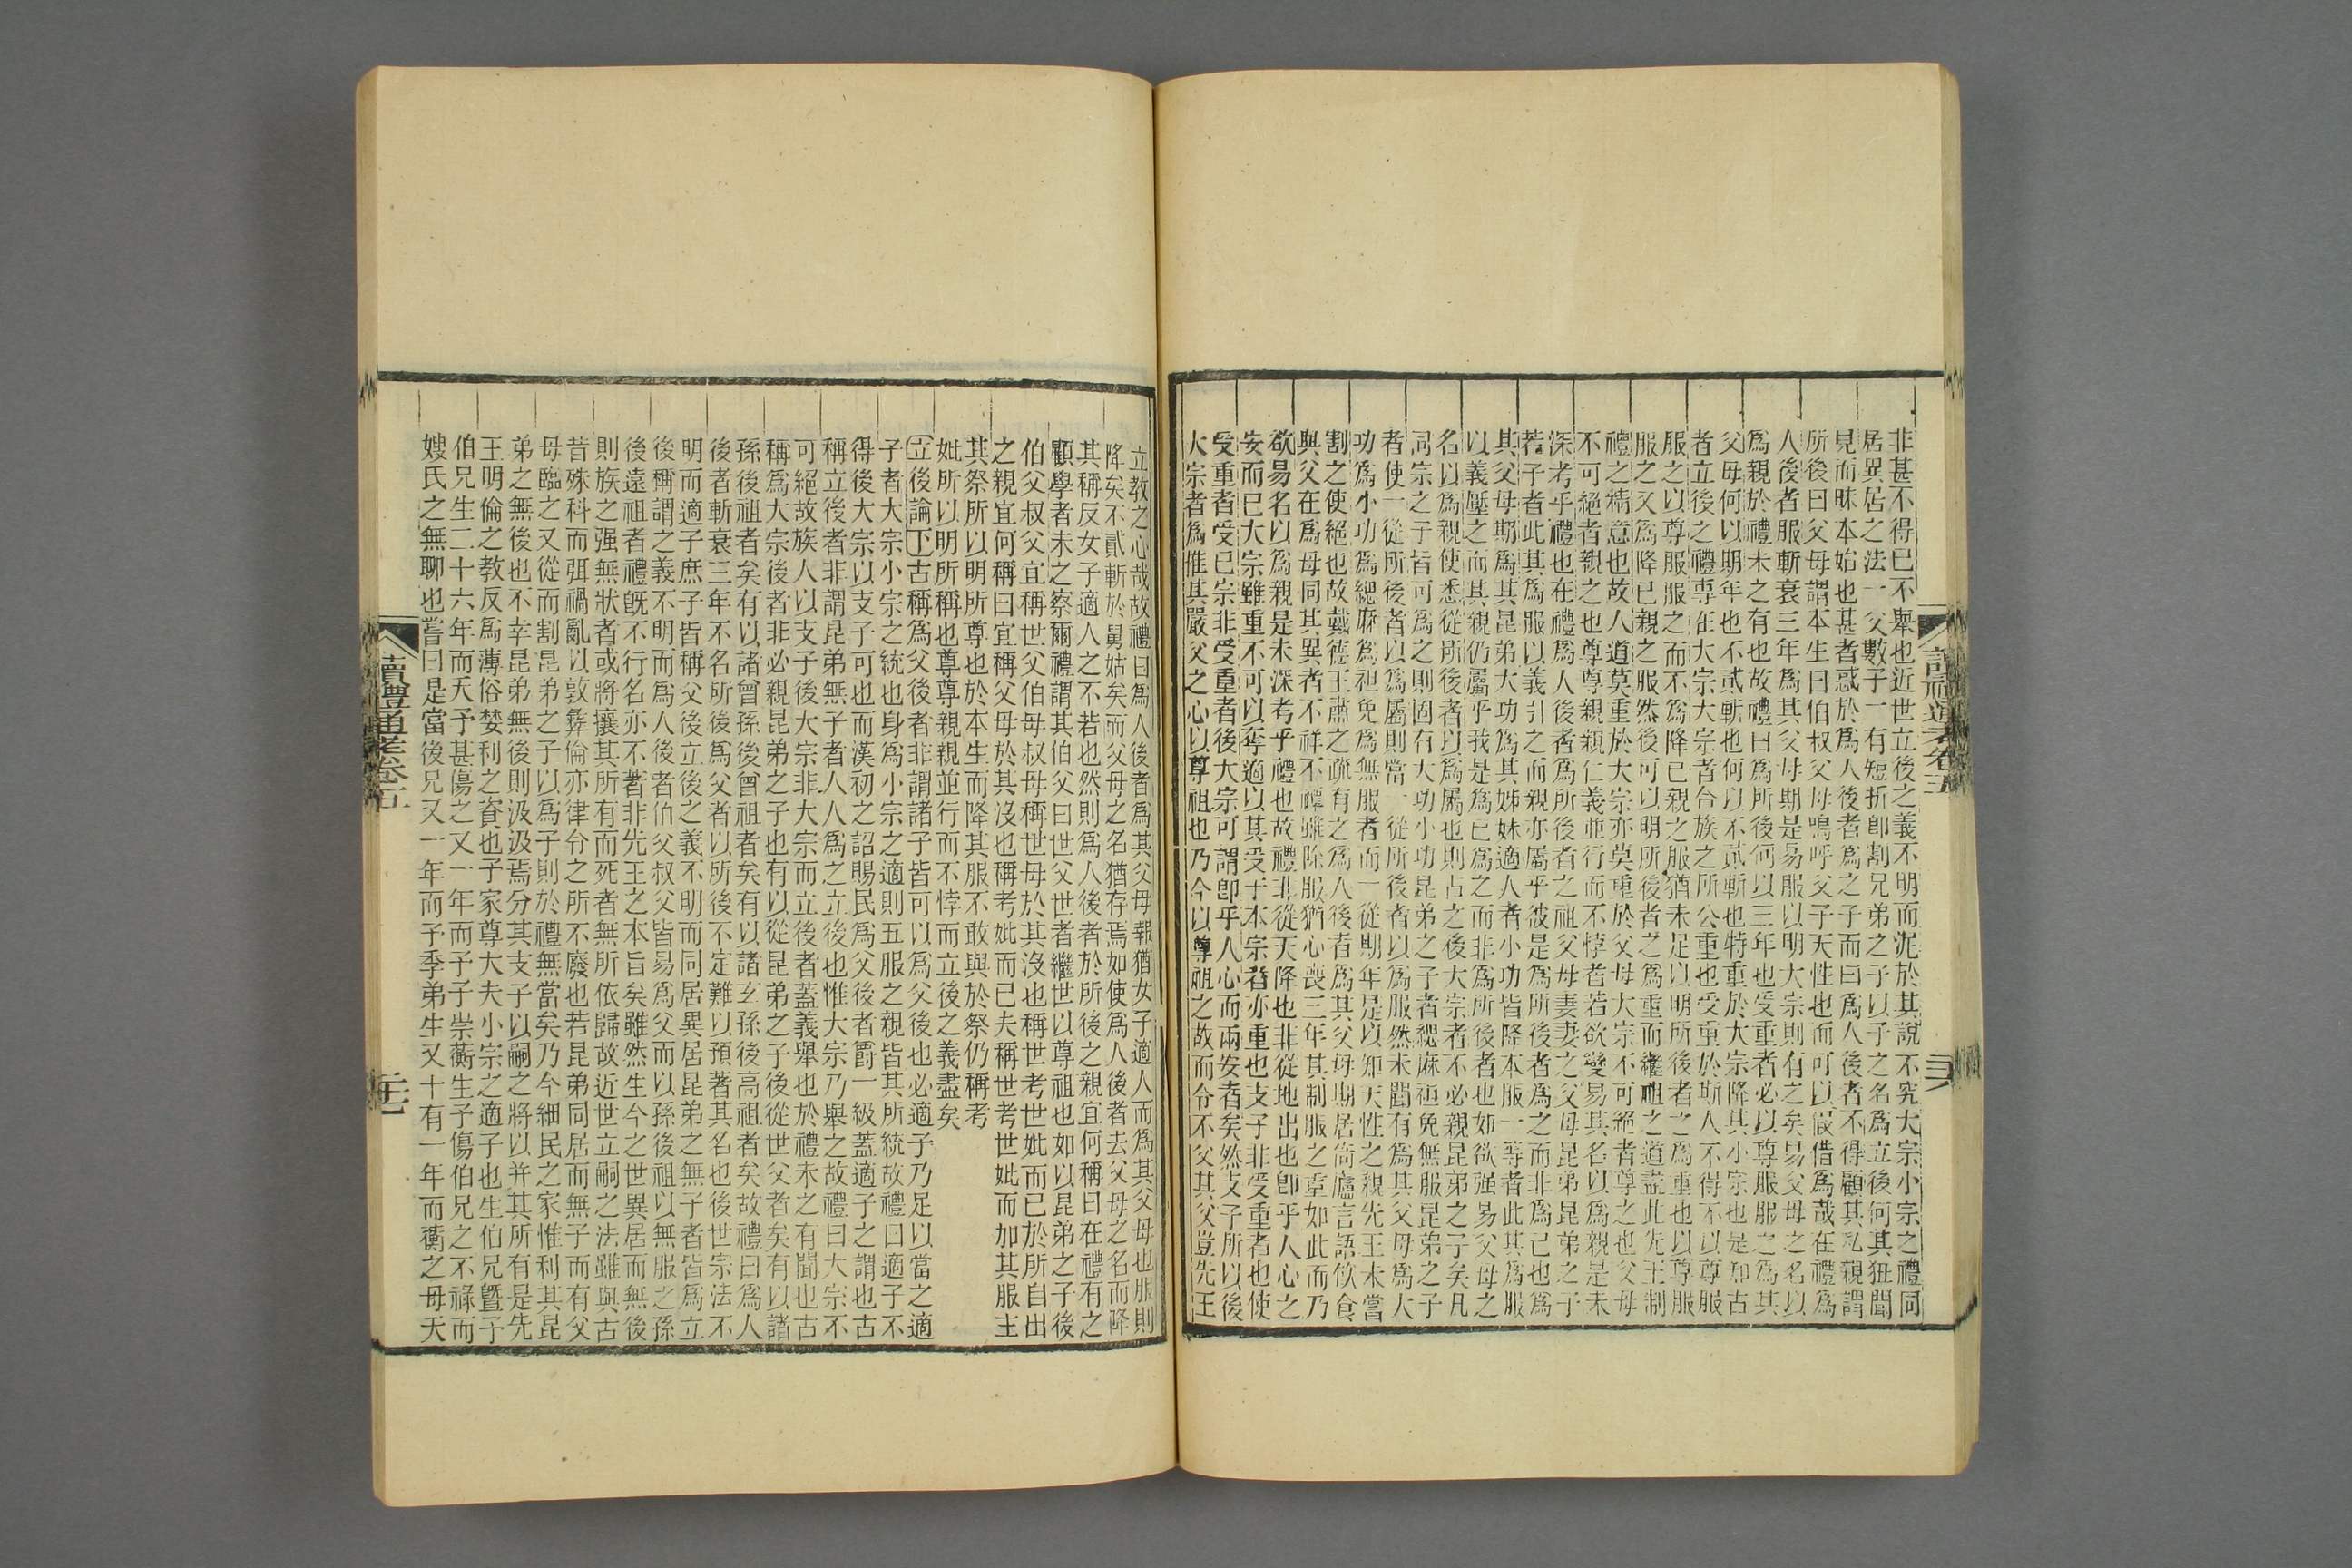 非甚不得已不舉也近世立後之義不明而泥於其說不究大宗小宗之禮同
居異居之法一父數子一有短折卽割兄弟之子以子之名爲立後何其狃聞
見而昧本始也甚者惑於爲人後者爲之子而曰爲人後者不得顧其私親謂
所後曰父母謂本生曰伯叔父母嗚呼父子天性也而可以假借爲哉在禮爲
人後者服斬衰三年爲其父母期是易服以明大宗則有之矣易父母之名以
爲親於禮未之有也故禮曰爲所後何以三年也受重者必以尊服服之爲其
父母何以期年也不貳斬也何以不貳斬也特重於大宗降其小宗也是知古
者立後之禮專在大宗大宗者合族之所公重也受重於斯人不得不以尊服
服之以尊服服之而不爲降己親之服猶未足以明所後者之爲重也以尊服
服之又爲降己親之服然後可以明所後者之爲重而繼祖之道盡此先王制
禮之精意也故人道莫重於大宗亦莫重於父母大宗不可絕者尊之也父母
不可絕者親之也尊尊親親仁義並行而不悖者若欲變易其名以爲親是未
深考乎禮也在禮爲人後者爲所後者之祖父母妻妻之父母昆弟昆弟之子
若子者此其爲服以義引之而親亦屬乎彼是爲所後者爲之而非爲己也爲
其父母期爲其昆弟大功爲其姊妹適人者小功皆降本服一等者此其爲服
以義壓之而其親仍屬乎我是爲已爲之而非爲所後者也如欲强易父母之
名以爲親使悉從所後者以爲屬也則古之後大宗者不必親昆弟之子矣凡
同宗之子皆可爲之則固有大功小功昆弟之子者緦麻袒免無服昆弟之子
者使一從所後者以爲屬則當一從所後者以爲服然未聞有爲其父母爲大
功爲小功爲緦麻爲袒免爲無服者而一從期年是以知天性之親先王未嘗
割之使絕也故戴德王肅之疏有之爲人後者爲其父母期居倚廬言語飮食
與父在爲母同其異者不祥不禫雖除服猶心喪三年其制服之重如此而乃
欲易名以爲親是未深考乎禮也故禮非從天降也非從地出也卽乎人心之
安而已大宗雖重不可以奪適以其受于本宗者亦重也支子非受重者也使
受重者受已宗非受重者後大宗可謂卽乎人心而兩安者矣然支子所以後
大宗者爲惟其嚴父之心以尊祖也乃今以尊祖之故而令不父其父豈先王
讀禮通考卷五
三六
立教之心哉故禮曰爲人後者爲其父母報猶女子適人而爲其父母也服則
降矣不貳斬於舅姑矣而父母之名猶存焉如使爲人後者去父母之名而降
其稱反女子適人之不若也然則爲人後者於所後之親宜何稱曰在禮有之
顧學者未之察爾禮謂其伯父曰世父世者繼世以尊祖也如以昆弟之子後
伯父叔父宜稱世父伯母叔母稱世母於其沒也稱世考世妣而已於所自出
之親宜何稱曰宜稱父母於其沒也稱考妣而已夫稱世考世妣而加其服主
其祭所以明所尊也於本生而降其服不敢與於祭仍稱考
妣所以明所稱也尊尊親親並行而不悖而立後之義盡矣
立後論下古稱爲父後者非謂諸子皆可以爲父後也必適子乃足以當之適
子者大宗小宗之統也身爲小宗之適則五服之親皆其所統故禮曰適子不
得後大宗以支子可也而漢初之詔賜民爲父後者爵一級蓋適子之謂也古
稱立後者非謂昆弟無子者人人爲之立後也惟大宗乃舉之故禮曰大宗不
可絕故族人以支子後大宗非大宗而立後者蓋義舉也於禮未之有聞也古
稱爲大宗後者非必親昆弟之子也有以從昆弟之子後從世父者矣有以諸
孫後祖者矣有以諸曾孫後曾祖者矣有以諸玄孫後高祖者矣故禮曰爲人
後者斬衰三年不名所後爲父者以所後不定難以預著其名也後世宗法不
明而適子庶子皆稱父後立後之義不明而同居異居昆弟之無子者皆爲立
後稱謂之義不明而爲人後者伯父叔父皆易爲父而以孫後祖以無服之孫
後遠祖者禮旣不行名亦不著非先王之本旨矣雖然生今之世異居而無後
則族之强無狀者或將攘其所有而死者無所依歸故近世立嗣之法雖與古
昔殊科而弭禍亂以敦彝倫亦律令之所不廢也若昆弟同居而無子而有父
母臨之又從而割昆弟之子以爲子則於禮無當矣乃今細民之家惟利其昆
弟之無後也不幸昆弟無後則汲汲焉分其支子以嗣之將以并其所有是先
王明倫之教反爲薄俗婪利之資也子家尊大夫小宗之適子也生伯兄曁予
伯兄生二十六年而夭予甚傷之又一年而子子崇蘅生予傷伯兄之不祿而
嫂氏之無聊也嘗曰是當後兄又一年而予季弟生又十有一年而蘅之母夭
讀禮通考卷五
三七